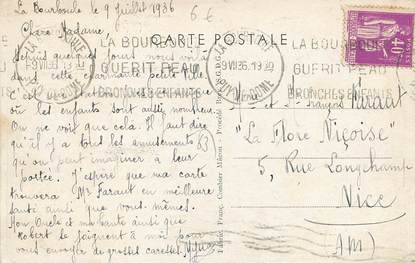 La Bourboule le 9 Juillet 1936
6 €
Chère Madame,
CARTE POSTALE
LA BOURBOULE
GUERIT PEAU
BRONCHES ENFANTS
LA BOURBOULE
GUERIT PEAU
BRONCHES ENFANTS
Depuis quelques jours nous voilà
dans cette charmante petite ville
C'est une
où les enfants sont aussi nombreux.
On ne voit que cela. Il faut dire
qu'il y a tous les amusements
qu'on peut imaginer à leur
portée. J'espère que ma carte
trouvera Mr Faraut en meilleure
santé ainsi que vous-mêmes.
Mon Oncle et ma tante ainsi que
Robert se joignent à moi pour
vous envoyer de grosses caresses.
63
Mr et Mme François Faraut
"La Flore Niçoise"
5, Rue Longchamp
Nice
(AM)